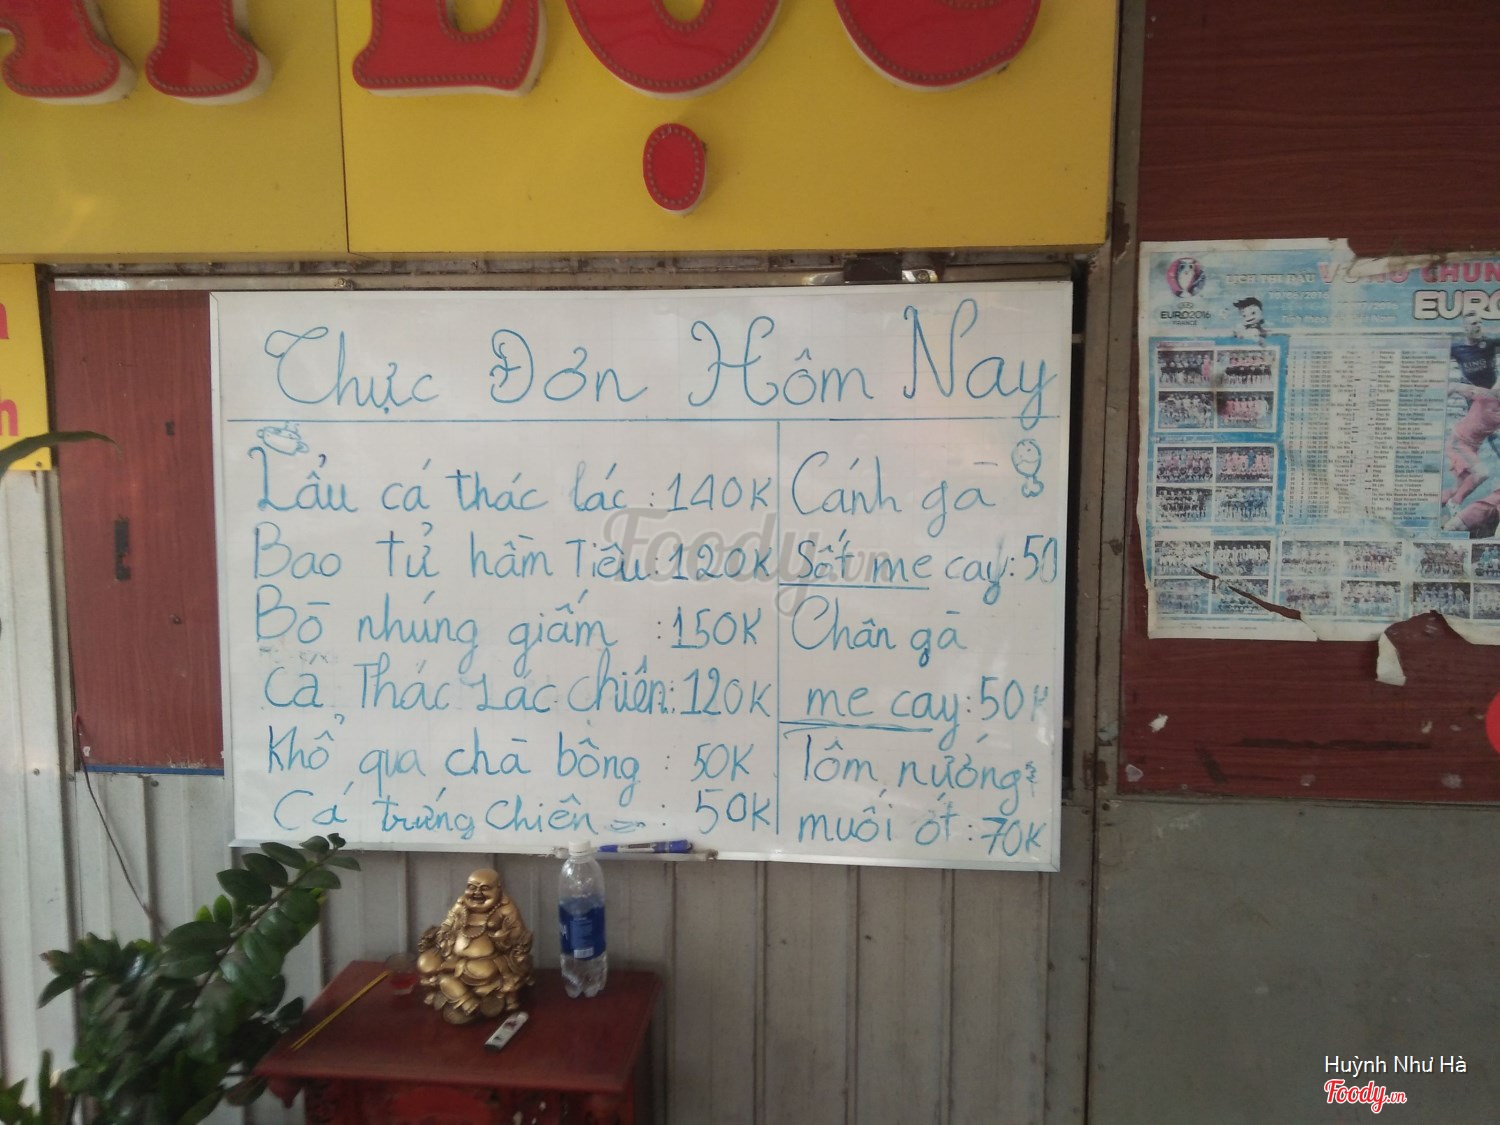 LỘC
Thực Đơn Hôm Nay
Lẩu cá thác lác : 140K
Bao tử hầm Tiêu : 120K
Bò nhúng giấm : 150K
Cá Thác Lác chiên : 120K
Khổ qua chà bông : 50K
Cá trứng chiên : 50K
Cánh gà
Sốt me cay : 50
Chân gà
me cay : 50K
Tôm nướng
muối ớt : 70K
LỊCH THI ĐẤU VÒNG CHUNG
EURO
EURO2016
FRANCE
Foody.vn
Huỳnh Như Hà
Foody.vn